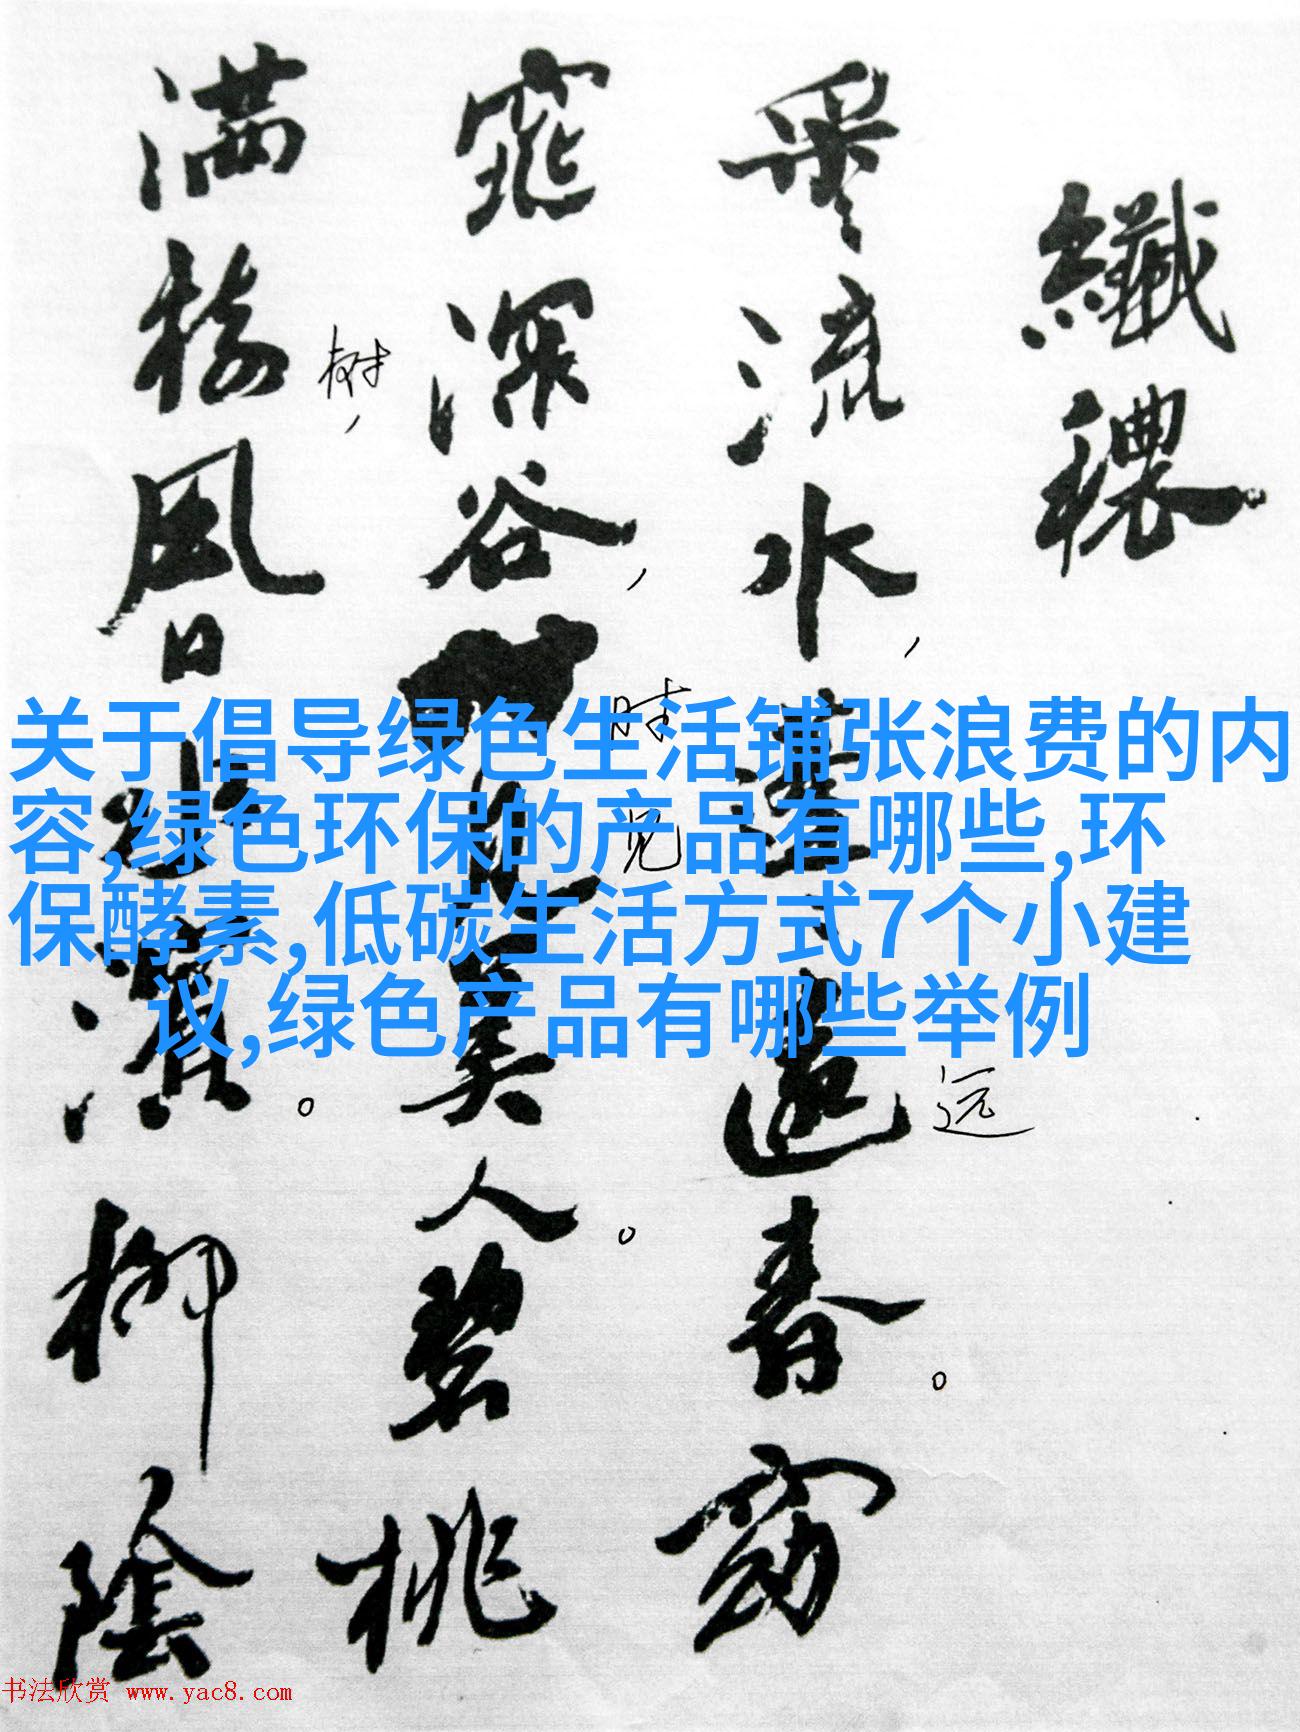 纖穠
采流水,
蓬蓬遠春。窈
窕深谷,時見美人。碧桃
满樹風日水濱。柳陰
树,
时
见
远
关于倡导绿色生活铺张浪费的内
容,绿色环保的产品有哪些,环
保酵素,低碳生活方式7个小建
议,绿色产品有哪些举例
书法欣赏 www.yac8.com